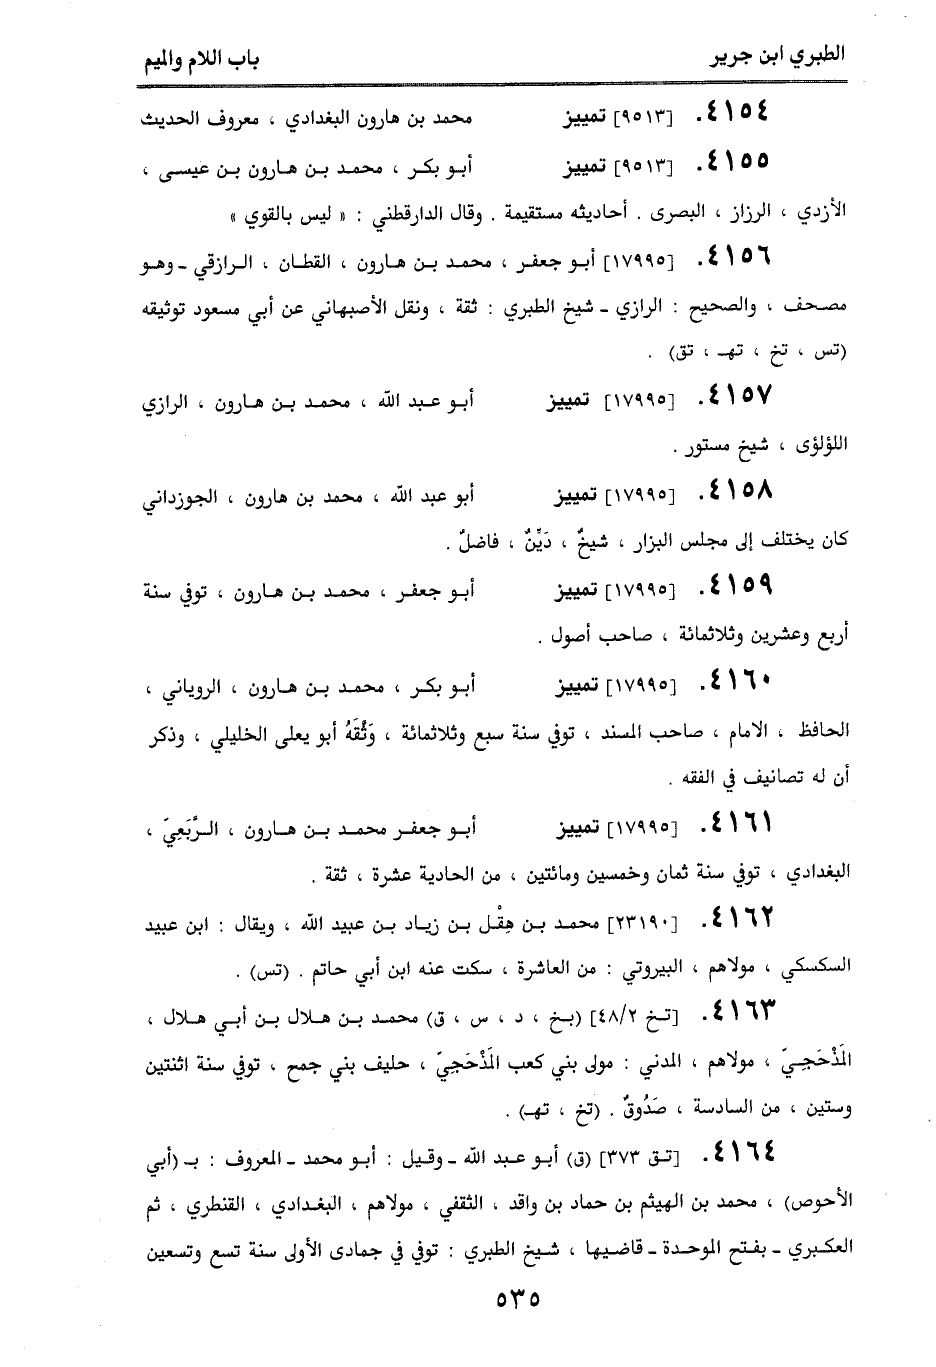 الطبري ابن جرير باب اللام والميم
٤١٥٤. [٩٥١٣] تمييز محمد بن هارون البغدادي ، معروف الحديث
٤١٥٥. [٩٥١٣] تمييز أبو بكر ، محمد بن هارون بن عيسى ،
الأزدي ، الرزاز ، البصرى . أحاديثه مستقيمة . وقال الدارقطني : « ليس بالقوي »
٤١٥٦. [١٧٩٩٥] أبو جعفر ، محمد بن هارون ، القطان ، الرازقي ـ وهو
مصحف ، والصحيح : الرازي ـ شيخ الطبري : ثقة ، ونقل الأصبهاني عن أبي مسعود توثيقه
(تس ، تخ ، تهـ ، تق) .
٤١٥٧. [١٧٩٩٥] تمييز أبو عبد الله ، محمد بن هارون ، الرازي
اللؤلؤى ، شيخ مستور .
٤١٥٨. [١٧٩٩٥] تمييز أبو عبد الله ، محمد بن هارون ، الجوزداني
كان يختلف إلى مجلس البزار ، شيخٌ ، دَيِّنٌ ، فاضلٌ .
٤١٥٩. [١٧٩٩٥] تمييز أبو جعفر ، محمد بن هارون ، توفي سنة
أربع وعشرين وثلاثمائة ، صاحب أصول .
٤١٦٠. [١٧٩٩٥] تمييز أبو بكر ، محمد بن هارون ، الروياني ،
الحافظ ، الامام ، صاحب المسند ، توفي سنة سبع وثلاثمائة ، وَثَّقَهُ أبو يعلى الخليلي ، وذكر
أن له تصانيف في الفقه .
٤١٦١. [١٧٩٩٥] تمييز أبو جعفر محمد بن هارون ، الرَّبَعِيّ ،
البغدادي ، توفي سنة ثمان وخمسين ومائتين ، من الحادية عشرة ، ثقة .
٤١٦٢. [٢٣١٩٠] محمد بن هِقْل بن زياد بن عبيد الله ، ويقال : ابن عبيد
السكسكي ، مولاهم ، البيروتي : من العاشرة ، سكت عنه ابن أبي حاتم . (تس) .
٤١٦٣. [تخ ٤٨/٢] (بخ ، د ، س ، ق) محمد بن هلال بن أبي هلال ،
المَذْحَجيّ ، مولاهم ، المدني : مولى بني كعب المَذْحَجيّ ، حليف بني جمح ، توفي سنة اثنتين
وستين ، من السادسة ، صَدُوقٌ . (تخ ، تهـ) .
٤١٦٤. [تق ٣٧٣] (ق) أبو عبد الله ـ وقيل : أبو محمد ـ المعروف : بـ (أبي
الأحوص) ، محمد بن الهيثم بن حماد بن واقد ، الثقفي ، مولاهم ، البغدادي ، القنطري ، ثم
العكبري ـ بفتح الموحدة ـ قاضيها ، شيخ الطبري : توفي في جمادى الأولى سنة تسع وتسعين
٥٣٥